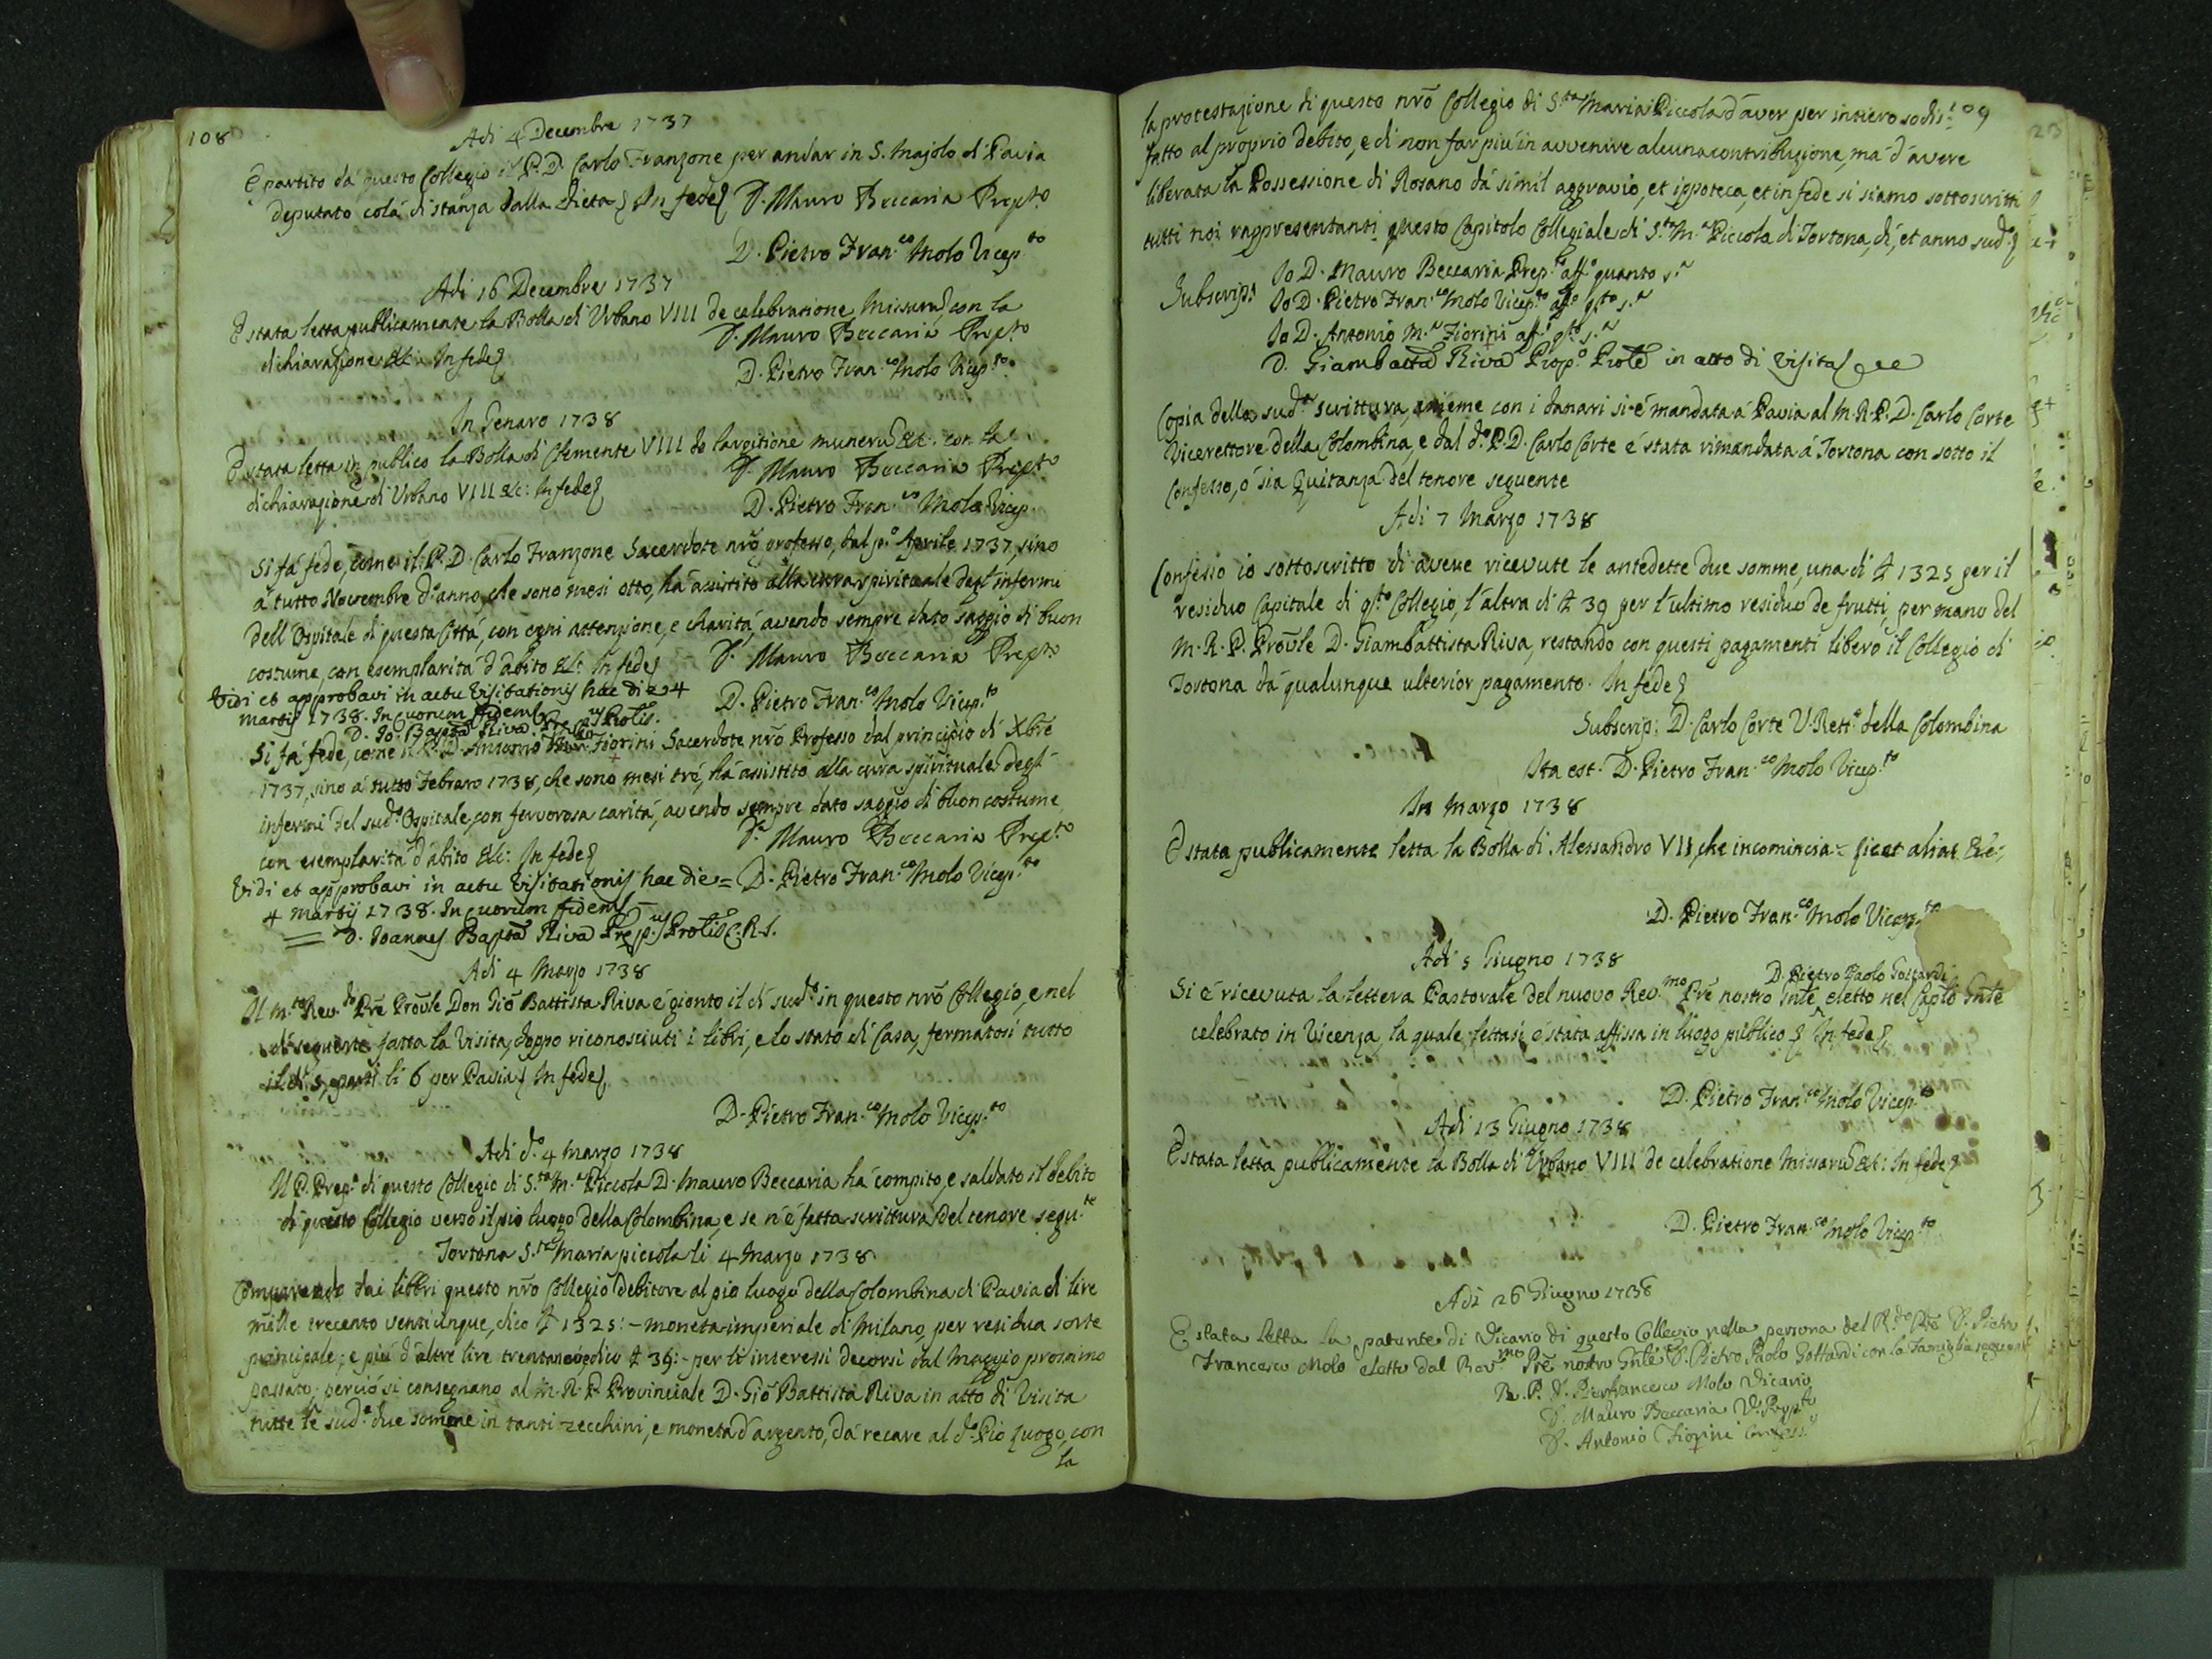 108
Adi 4 Decembre 1737
È partito dà questo Collegio il P. D. Carlo Franzone per andar in S. Majolo di Pavia
deputato colà di stanza dalla Dieta. In fede D. Mauro Beccaria Prep.to
D. Pietro Fran.co Molo Vicep.to
Adi 16 Decembre 1737
È stata letta publicamente la Bolla di Urbano VIII de celebratione Missarũ con la
dichiarazione &c. In fede
D. Mauro Beccaria Prep.to
D. Pietro Fran.co Molo Vicep.to
In Genaro 1738
È stata letta in publico la Bolla di Clemente VIII de largitione munerũ &c. con la
dichiarazione di Urbano VIII &c: In fede
D. Mauro Beccaria Prep.to
D. Pietro Fran.co Molo Vicep.
Si fà fede, come il P. D. Carlo Franzone Sacerdote nrõ professo, dal p.o Aprile 1737, sino
à tutto Novembre d.o anno, che sono mesi otto, hà assistito alla cura spirituale degl'infermi
dell'Ospitale di questa Città, con ogni attenzione, e charità, avendo sempre dato saggio di buon
costume, con esemplarità d'abito &c: In fede D. Mauro Beccaria Prep.to
Vidi et approbavi in actu Visitationis hac die 4
Martij 1738. In quorum fidem
D. Pietro Fran.co Molo Vicep.to
D. Jo: Bapta Riva Prep.us Prolis.
Si fà fede, come il P. D. Antonio Mar. Fiorini Sacerdote nrõ Professo dal principio di Xbre
1737, sino à tutto Febraro 1738, che sono mesi tré, hà assistito alla cura spirituale degl'
infermi del sud.o Ospitale, con fervorosa carità, avendo sempre dato saggio di buon costume,
con esemplarità d'abito &c: In fede
D. Mauro Beccaria Prep.to
Vidi et approbavi in actu Visitationis hac die = D. Pietro Fran.co Molo Vicep.to
4 Martij 1738. In quorum fidem
D. Joannes Bapta Riva Prep.us Prolis C. R. S.
Adi 4 Marzo 1738
Il M.to Rev.do Prẽ Provle Don Giõ Battista Riva è gionto il dì sud.o in questo nrõ Collegio, e nel
dì seguente fatta la Visita, doppo riconosciuti i libri, e lo stato di Casa, fermatosi tutto
il dì 5, partì li 6 per Pavia. In fede
D. Pietro Fran.co Molo Vicep.to
Adi d.o 4 Marzo 1738
Il P. Prep.o di questo Collegio di S.ta M.a Piccola D. Mauro Beccaria hà compito, e saldato il debito
di questo Collegio verso il pio luogo della Colombina, e se n'è fatta scrittura del tenore segu.te
Tortona S.ta Maria piccola li 4 Marzo 1738
Comparendo dai libbri questo nrõ Collegio debitore al pio luogo della Colombina di Pavia di lire
mille trecento venticinque, dico £ 1325:- moneta imperiale di Milano, per residua sorte
principale; e più d'altre lire trentanove, dico £ 39:- per li interessi decorsi dal Maggio prossimo
passato; perciò si consegnano al M. R. P. Provinciale D. Giõ Battista Riva in atto di Visita
tutte le sud.e due somme in tanti zecchini, e moneta d'argento, dà recare al d.o Pio Luogo, con
la
109
la protestazione di questo nrõ Collegio di S.ta Maria Piccola d'aver per intiero sodis-
fatto al proprio debito, e di non far più in avvenire alcuna contribuzione, mà d'avere
liberata la Possessione di Rosano dà simil aggravio, et ippoteca, et in fede si siamo sottoscritti
tutti noi rappresentanti questo Capitolo Collegiale di S.ta M.a Piccola di Tortona, dì, et anno sud.o
Subscrip: Io D. Mauro Beccaria Prep.to aff.o quanto s.a
Io D. Pietro Fran.co Molo Vicep.to aff.o q.to s.a
Io D. Antonio M.a Fiorini aff.o q.to s.a
D. Giambatta Riva Prop.o Prole in atto di Visita
Copia della sud.a scrittura, insieme con i danari si è mandata à Pavia al M. R. P. D. Carlo Corte
Vicerettore della Colombina, e dal d.o P. D. Carlo Corte è stata rimandata à Tortona con sotto il
Confesso, ò sia Quitanza del tenore seguente
Adi 7 Marzo 1738
Confesso io sottoscritto di avere ricevute le antedette due somme, una di £ 1325 per il
residuo Capitale di q.to Collegio, l'altra di £ 39 per l'ultimo residuo de frutti, per mano del
M. R. P. Provle D. Giambattista Riva, restando con questi pagamenti libero il Collegio di
Tortona dà qualunque ulterior pagamento. In fede
Subscrip: D. Carlo Corte V. Rett.e della Colombina
Ita est. D. Pietro Fran.co Molo Vicep.to
In Marzo 1738
È stata publicamente letta la Bolla di Alessandro VII, che incomincia = licet alias &c:,
D. Pietro Fran.co Molo Vicep.to
Adi 5 Giugno 1738
D. Pietro Paolo Gottardi
Si è ricevuta la lettera Pastorale del nuovo Rev.mo Prẽ nostro Gnle, eletto nel Caplo Gnle
celebrato in Vicenza, la quale lettasi è stata affissa in luogo publico. In fede
D. Pietro Fran.co Molo Vicep.to
Adi 13 Giugno 1738
È stata letta publicamente la Bolla di Urbano VIII de celebratione Missarũ &c: In fede
D. Pietro Fran.co Molo Vicep.to
Adi 26 Giugno 1738
È stata letta la patente di Vicario di questo Collegio nella persona del R.do Prẽ D. Pietro
Francesco Molo eletto dal Rev.mo Prẽ nostro Gnle D. Pietro Paolo Gottardi con la famiglia seguente
R. P. D. Pierfrancesco Molo Vicario
D. Mauro Beccaria V. Prep.to
D. Antonio Fiorini Confess.